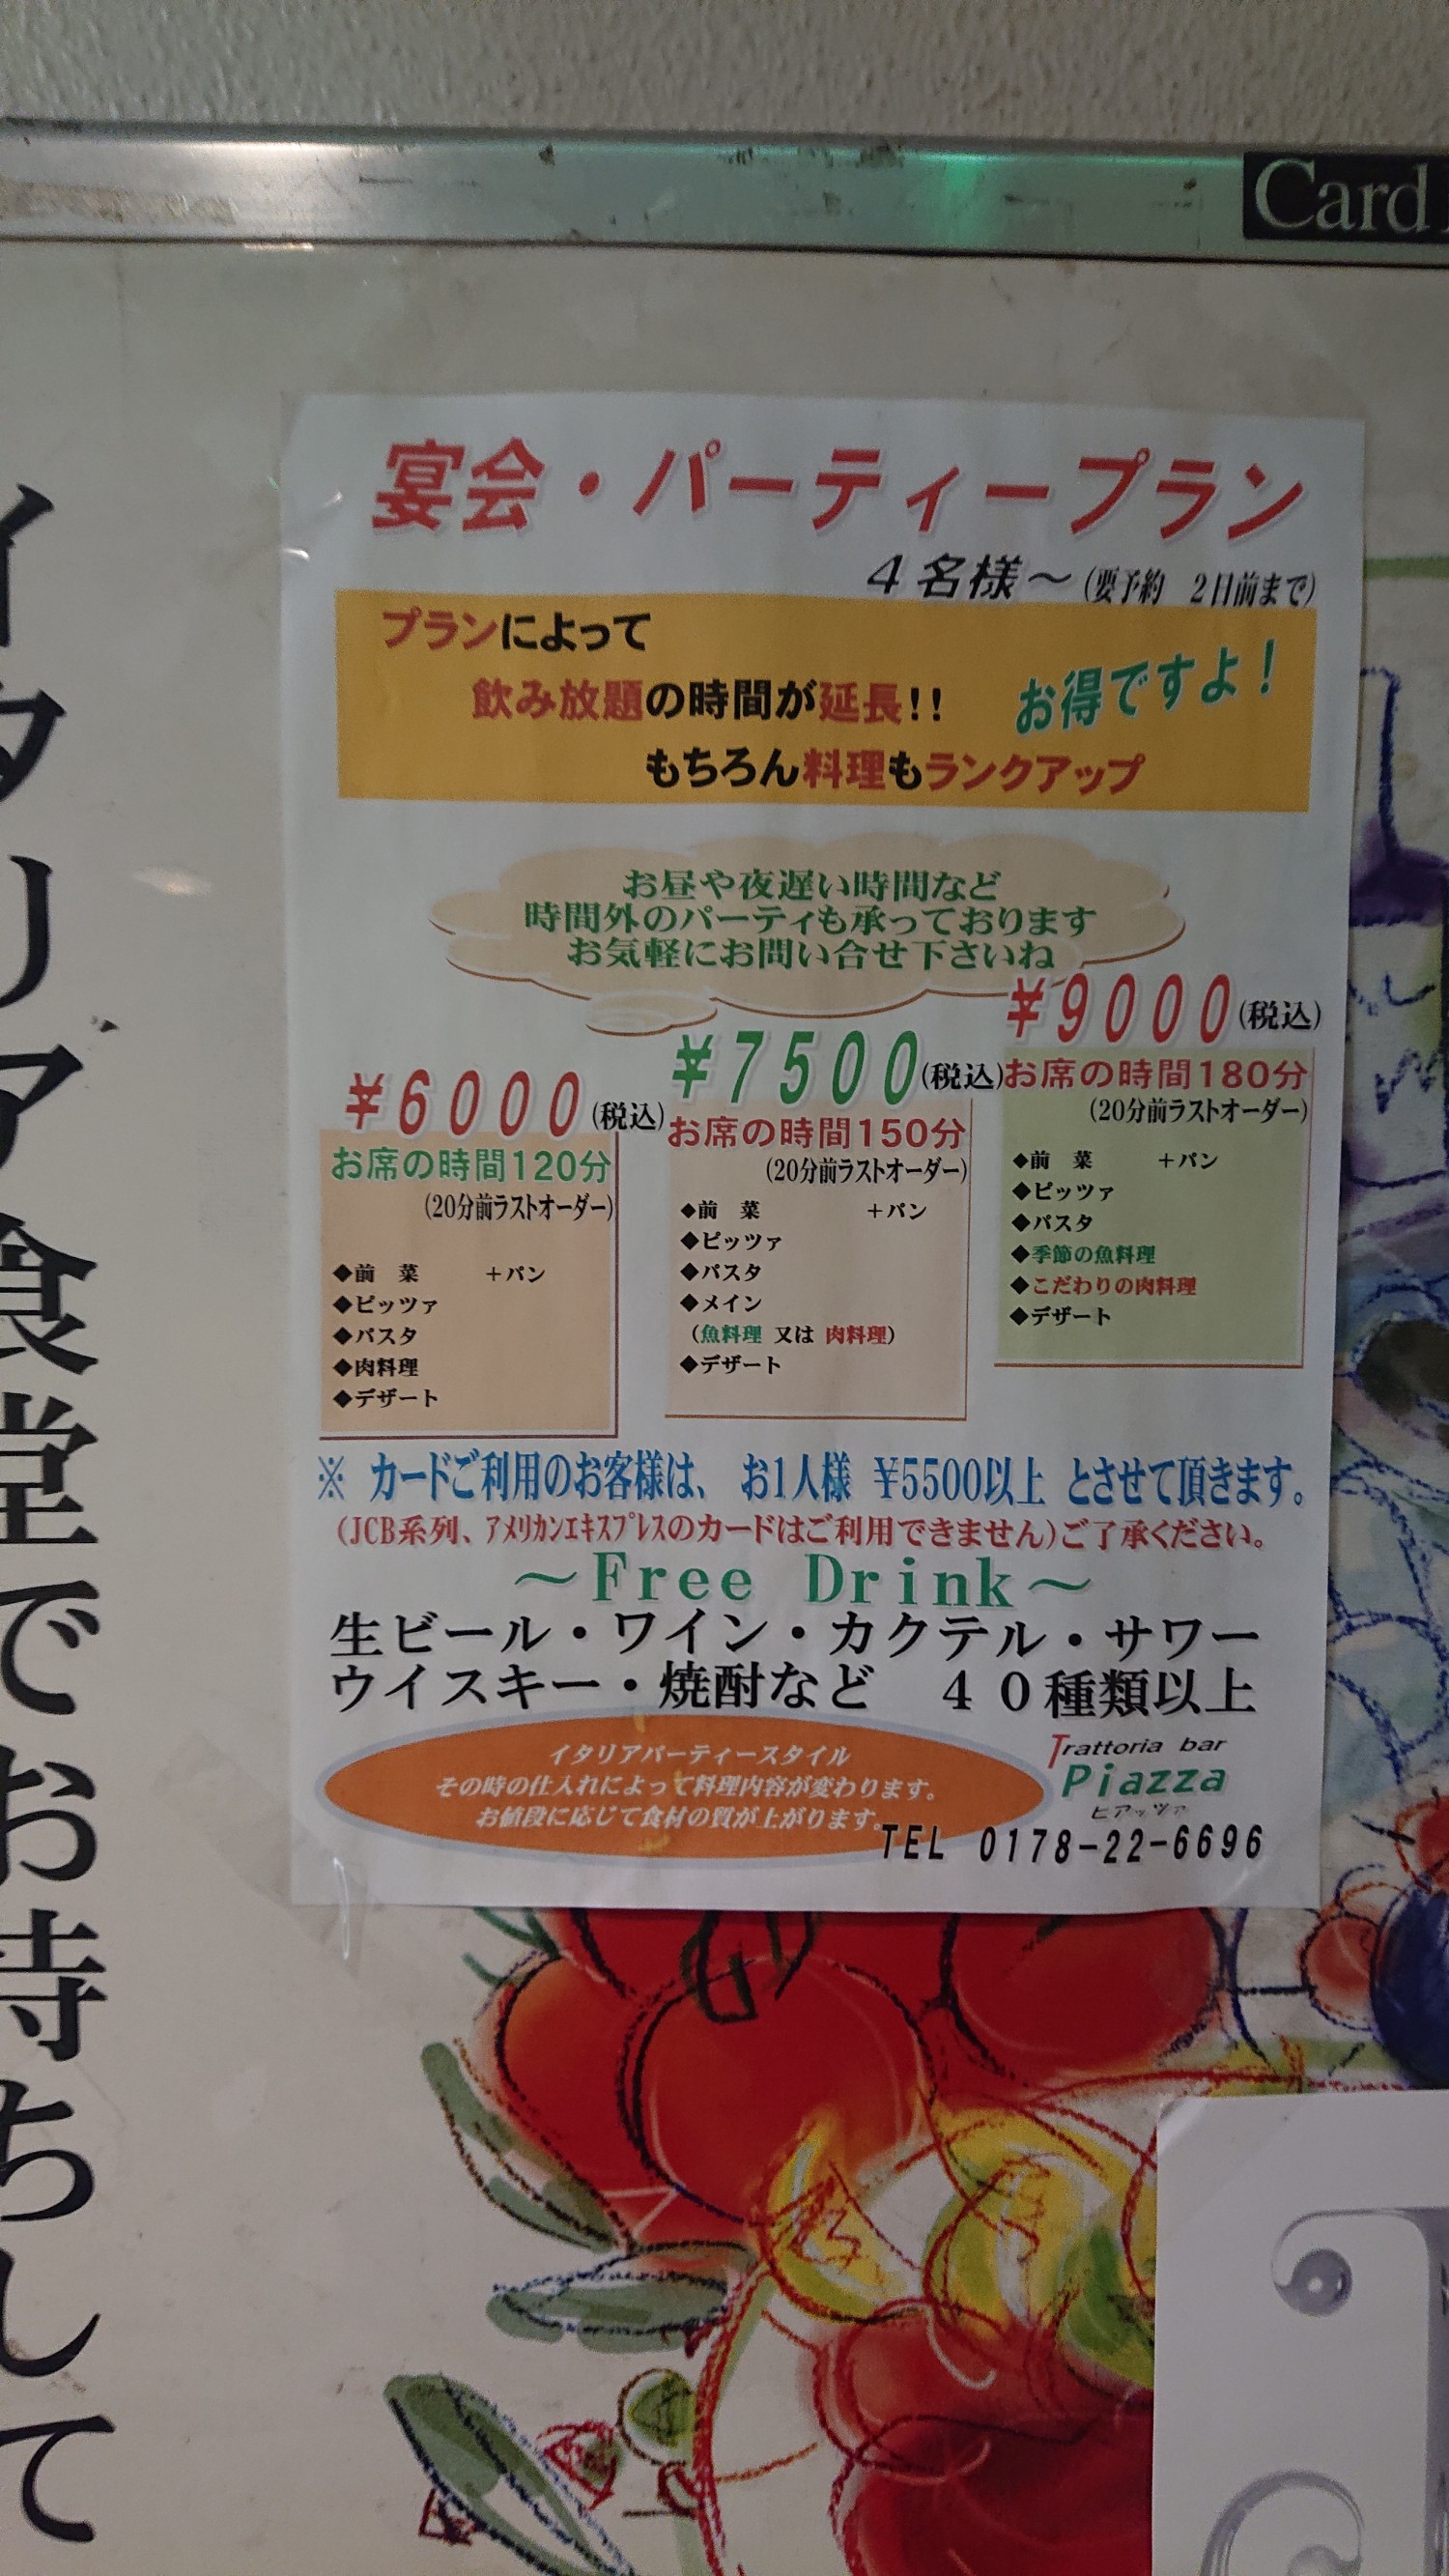 Card
イタリア食堂でお待ちして
宴会・パーティープラン
4名様～(要予約 2日前まで)
プランによって
飲み放題の時間が延長!!
お得ですよ!
もちろん料理もランクアップ
お昼や夜遅い時間など
時間外のパーティも承っております
お気軽にお問い合せ下さいね
¥6000(税込)
お席の時間120分
(20分前ラストオーダー)
◆前 菜 +パン
◆ピッツァ
◆パスタ
◆肉料理
◆デザート
¥7500(税込)
お席の時間150分
(20分前ラストオーダー)
◆前 菜 +パン
◆ピッツァ
◆パスタ
◆メイン
(魚料理 又は 肉料理)
◆デザート
¥9000(税込)
お席の時間180分
(20分前ラストオーダー)
◆前 菜 +パン
◆ピッツァ
◆パスタ
◆季節の魚料理
◆こだわりの肉料理
◆デザート
※ カードご利用のお客様は、 お1人様 ¥5500以上 とさせて頂きます。
(JCB系列、アメリカンエキスプレスのカードはご利用できません)ご了承ください。
～Free Drink～
生ビール・ワイン・カクテル・サワー
ウイスキー・焼酎など 40種類以上
イタリアパーティースタイル
その時の仕入れによって料理内容が変わります。
お値段に応じて食材の質が上がります。
Trattoria bar
Piazza
ピアッツァ
TEL 0178-22-6696